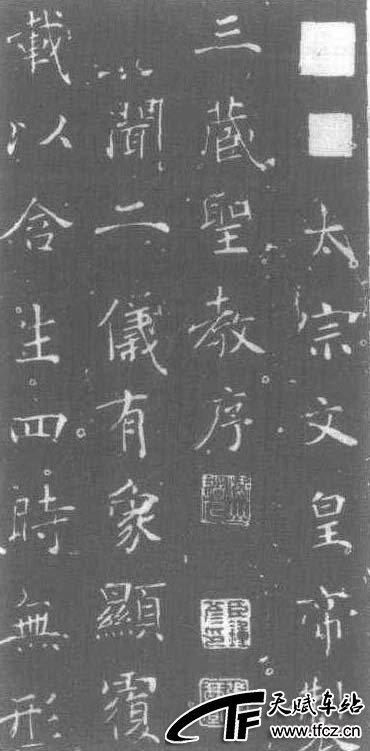 太宗文皇帝製
三藏聖教序
聞二儀有象顯覆
載以含生四時無形
TF 天赋车站
www.tfcz.cn